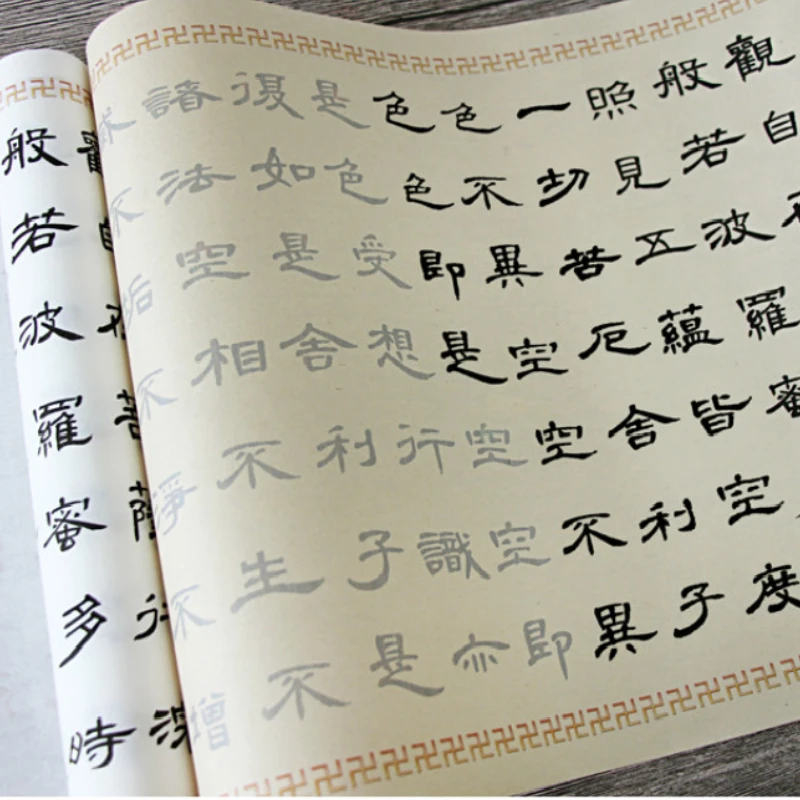 觀自
般若波羅蜜
照見五蘊皆空度
一切苦厄舍利子
色不異空空不異
色色即是空空即
是色受想行識亦
復如是舍利子是
諸法空相不生不
不垢不淨不增
行深
般若波羅蜜多時